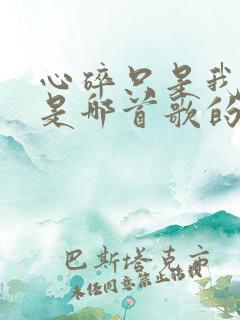 心碎只是我
是那首歌的
巴斯塔克亦
未经同意禁止转载